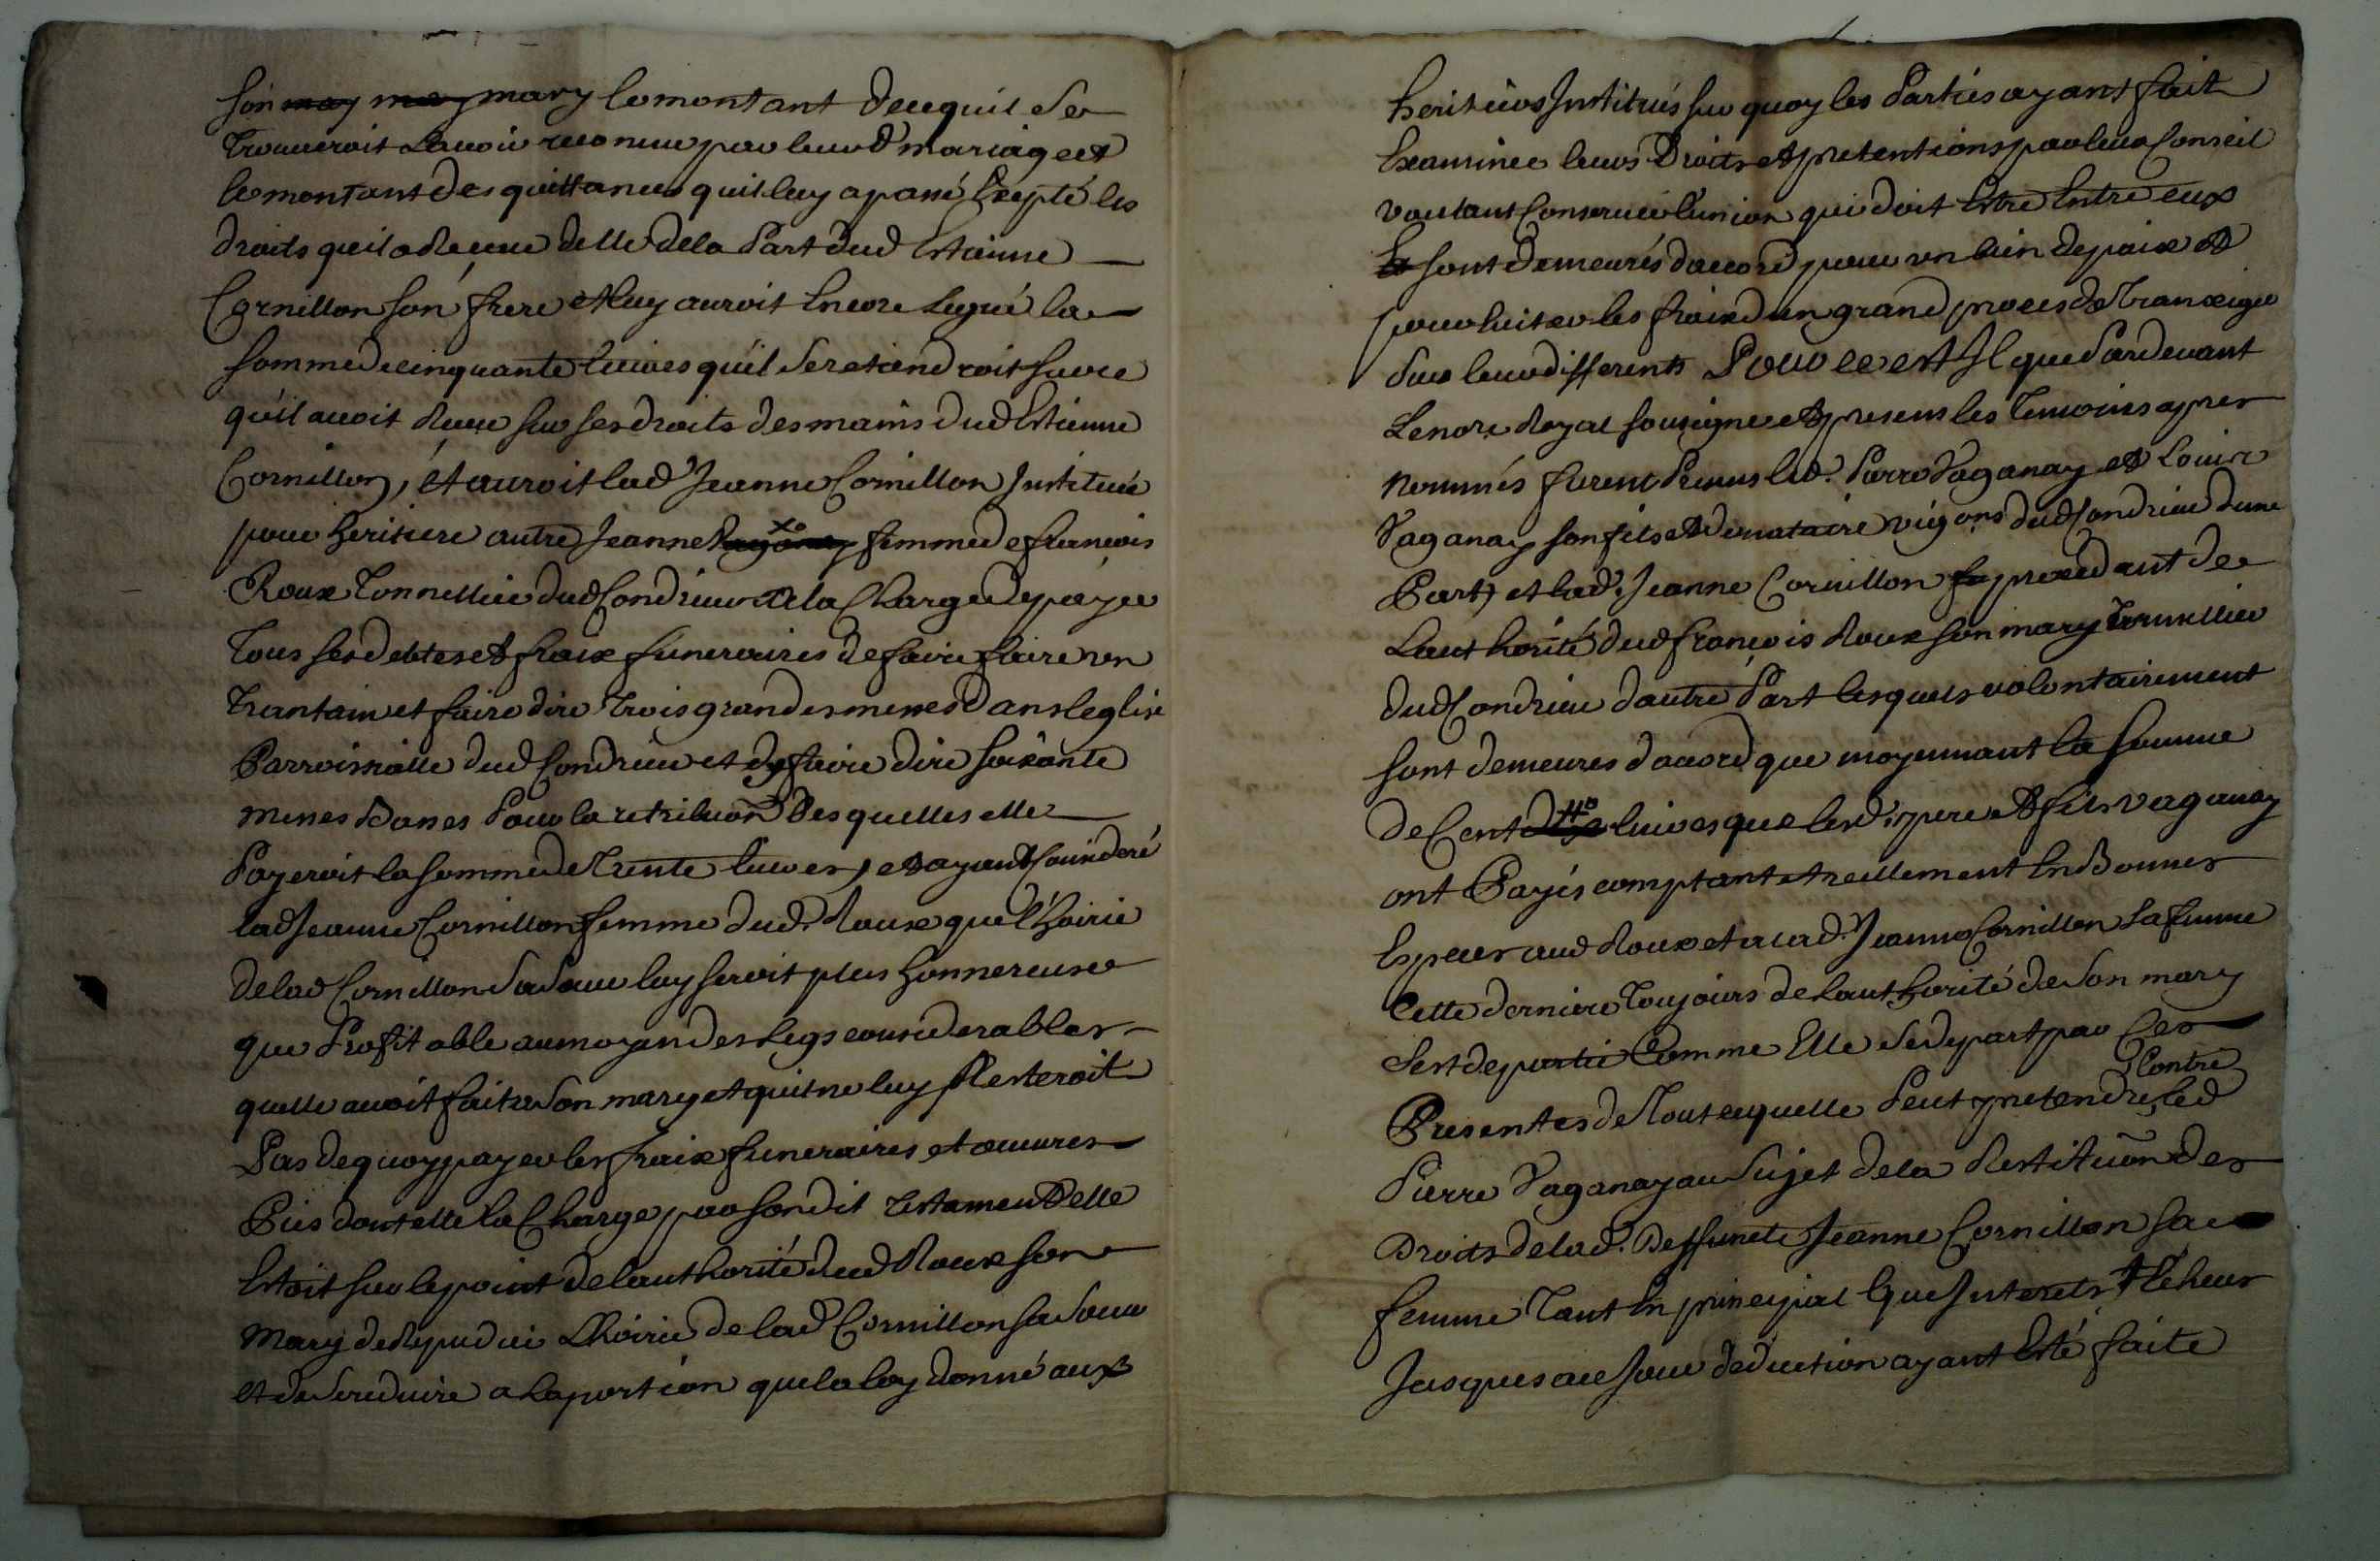 son may may mary le montant de ce quil se
trouveroit lavoir reconnue par leurd mariage et
le montant des quittances quil luy a passé Exepté les
droits quil a Receus delle de la Part dud Estienne
Cornillon son frere et luy auroit Encore Legué la
somme de cinquante livres quil se retiendroit sur ce
qu'il avoit Receu sur ses droits des mains dud Estienne
Cornillon, et auroit lad Jeanne Cornillon Instituée
pour heritiere autre Jeanne femme de francois
Roux Tonnellier dud Condrieu à la Charge de payer
Tous ses debtes et fraix funeraires de faire faire un
Trantain et faire dire Trois grandes messes dans leglise
Parroissialle dud Condrieu et dy faire dire soixante
messes Basses Pour la retribuon Desquelles elle
Payeroit la somme de Trente livres, et ayant Considéré
lad Jeanne Cornillon femme dud. Roux que l'hoirie
de lad Cornillon sa soeur luy seroit plus honnereuse
que Profitable au moyen des Legs considerables
quelle avoit fait a son mary et quil ne luy Resteroit
Pas de quoy payer les fraix funeraires et oeuvres
Pies dont elle la Charge par son dit testament Elle
Estoit sur le point de lauthorité dud Roux son
Mary de Repudier Lhoirie de lad Cornillon sa soeur
et de se reduire a la portion que la loy donne aux
heritiers Institués sur quoy les Parties ayant fait
Examiner leurs Droits et pretentions par leur Conseil
voulant Conserver l'union qui doit Estre Entre eux
sont demeurés d'accord pour un bien de paix et
pour Eviter les fraix d'un grand proces de Transiger
sur leurs differents Pour ce est Il que Pardevant
Le nore Royal sousigne et presens les Temoins apres
Nommés furent Presens led. Pierre Vaganay et Louis
Vaganay son fils et donataire vigons dud Condrieu dune
Part, et lad. Jeanne Cornillon procedant de
Lauthorité dud francois Roux son mary Tonnellier
dud Condrieu dautre Part lesquels volontairement
sont demeures d'accord que moyennant la somme
de Cent livres que lesd. pere et fils vaganay
ont Payés comptant et reellement En Bonnes
Especes aud Roux et a lad. Jeanne Cornillon sa femme
Cette derniere Toujours de lauthorité de son mary
sest departie Comme Elle se depart par Ces
Presentes de Tout ce quelle Peut pretendre Contre led
Pierre Vaganay au sujet de la Restituon des
Droits de lad. Deffuncte Jeanne Cornillon sa
femme Tant En principal que Interets
Jusques a ce Jour deduction ayant Esté faite